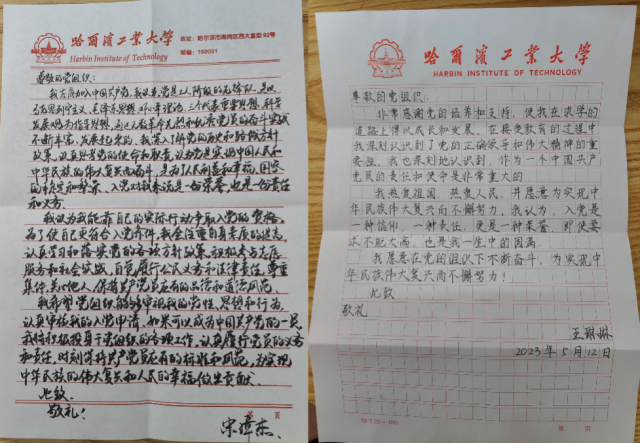 哈爾濱工業大學
Harbin Institute of Technology
地址：哈尔滨市南岗区西大直街92号
邮编：150001
尊敬的党组织：
我志愿加入中国共产党。我认为，党是工人阶级的先锋队，是以
马克思列宁主义、毛泽东思想、邓小平理论、三个代表重要思想、科学
发展观为指导思想，
不断丰富、发展起来的。我深入了解党的历史和路线方针
政策，认真思考党的使命和职责，认为党是实现中国人民和
中华民族的伟大复兴而奋斗，是为了人民利益和幸福，国家
的稳定和繁荣。入党对我来说是一份荣誉，也是一份责任
和义务。
我认为我能靠自己的实际行动争取入党的资格，
为了使自己更符合入党条件，我会注重自身素质的提高，
认真学习和落实党的各项方针政策，积极参与志愿
服务和社会实践，自觉履行公民义务和法律责任，尊重
集体，关心他人，保持共产党员应有的品德和道德风范。
我希望党组织能够审视我的党性、思想和行为，
认真审核我的入党申请，如果可以成为中国共产党的一员，
我将积极投身于党组织的各项工作，认真履行党员的义务
和责任，时刻保持共产党员应有的标准和风范，为实现
中华民族的伟大复兴和人民的幸福做出贡献。
此致
敬礼！
页
哈爾濱工業大學
HARBIN INSTITUTE OF TECHNOLOGY
尊敬的党组织：
非常感谢党的培养和支持，使我在求学的
道路上得以成长和发展。在接受教育的过程中
我深刻认识到了党的正确领导和伟大精神的重
要性。我也深刻地认识到，作为一个中国共产
党员的责任和使命是非常重大的。
我热爱祖国，热爱人民，并愿意为实现中
华民族伟大复兴而不懈努力。我认为，入党是
一种信仰，一种责任，更是一种荣誉，即使要
求不能太高，也是我一生中的圆满。
我愿意在党的组织下不断奋斗，为实现中
华民族伟大复兴而不懈努力！
此致
敬礼
王琳琳
2023年5月12日
页